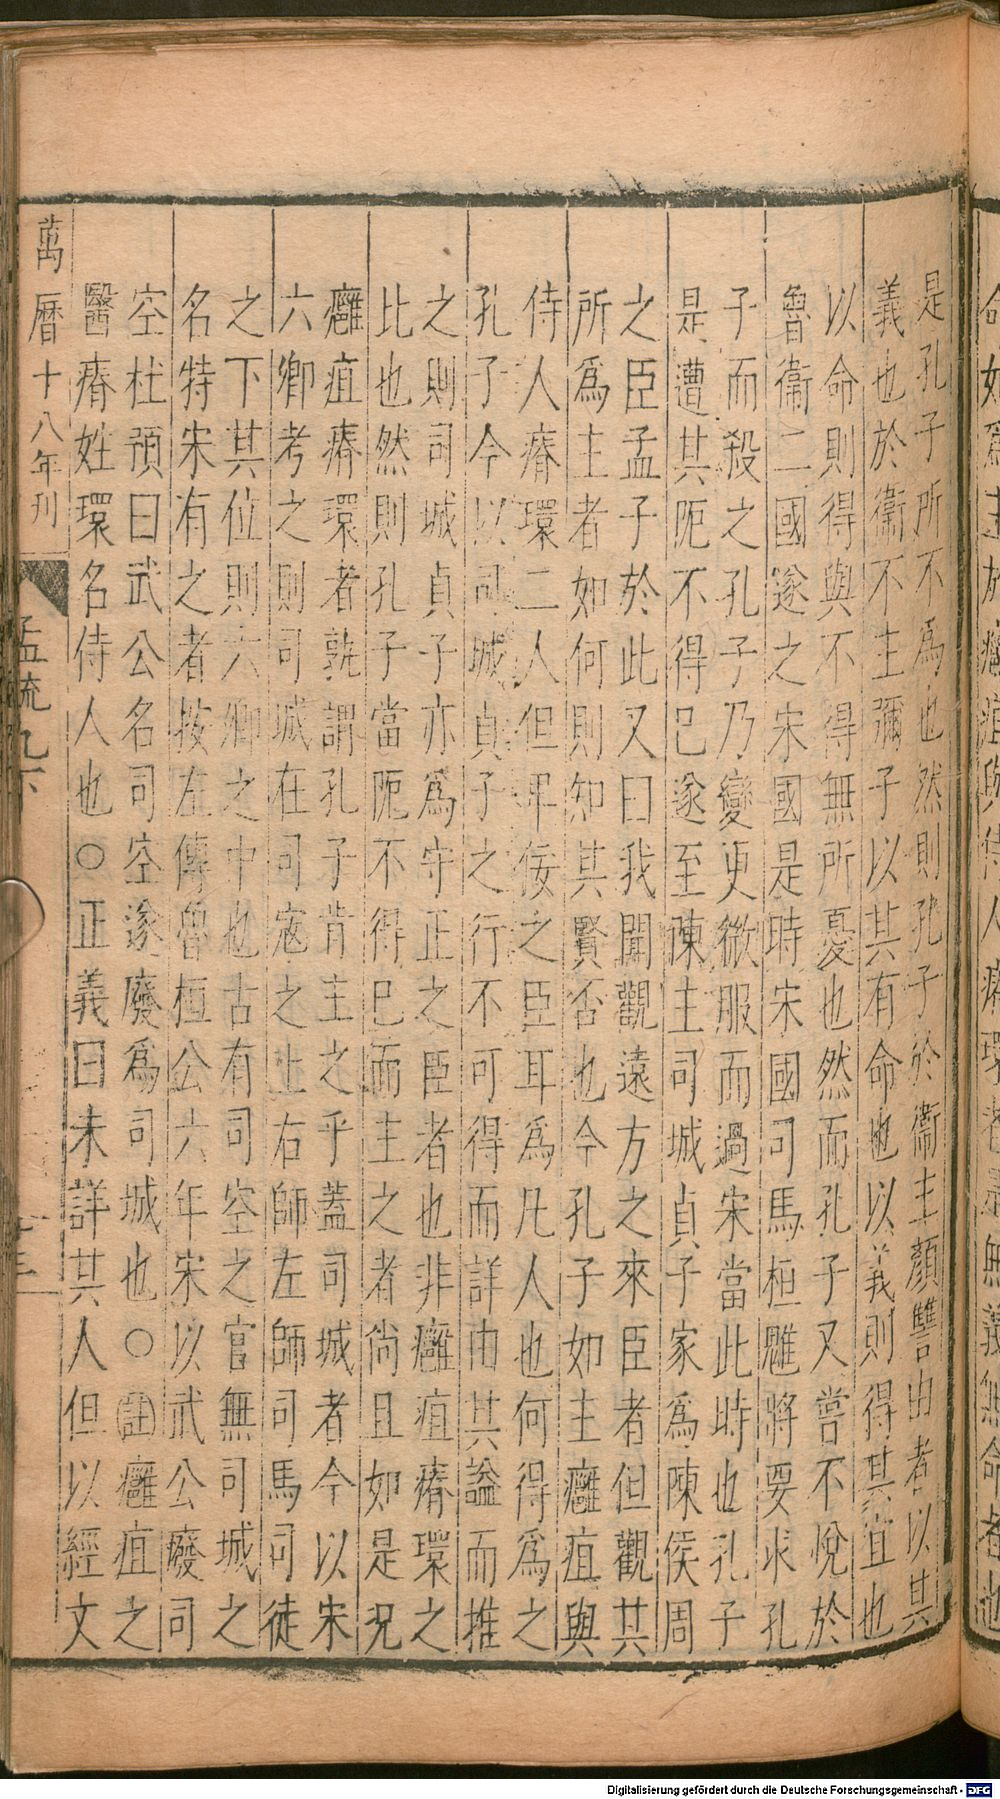 是孔子所不為也然則孔子於衞主顏讐由者以其
義也於衞不主彌子以其有命也以義則得其宜也
以命則得與不得無所憂也然而孔子又嘗不悅於
魯衞二國遂之宋國是時宋國司馬桓魋將要求孔
子而殺之孔子乃變更微服而過宋當此時也孔子
是遭其阨不得已遂至陳主司城貞子家爲陳侯周
之臣孟子於此又曰我聞觀遠方之來臣者但觀其
所爲主者如何則知其賢否也今孔子如主癰疽與
侍人瘠環二人但卑佞之臣耳爲凡人也何得爲之
孔子今以司城貞子之行不可得而詳由其謚而推
之則司城貞子亦爲守正之臣者也非癰疽瘠環之
比也然則孔子當阨不得已而主之者尚且如是况
癰疽瘠環者孰謂孔子肯主之乎蓋司城者今以宋
六卿考之則司城在司寇之上右師左師司馬司徒
之下其位則六卿之中也古有司空之官無司城之
名特宋有之者按左傳魯桓公六年宋以武公廢司
空杜預曰武公名司空遂廢爲司城也○註癰疽之
醫瘠姓環名侍人也○正義曰未詳其人但以經文
萬曆十八年刊
孟疏九下
命如爲主於癰疽與侍人瘠環者是無義無命者也
Digitalisierung gefördert durch die Deutsche Forschungsgemeinschaft - DFG